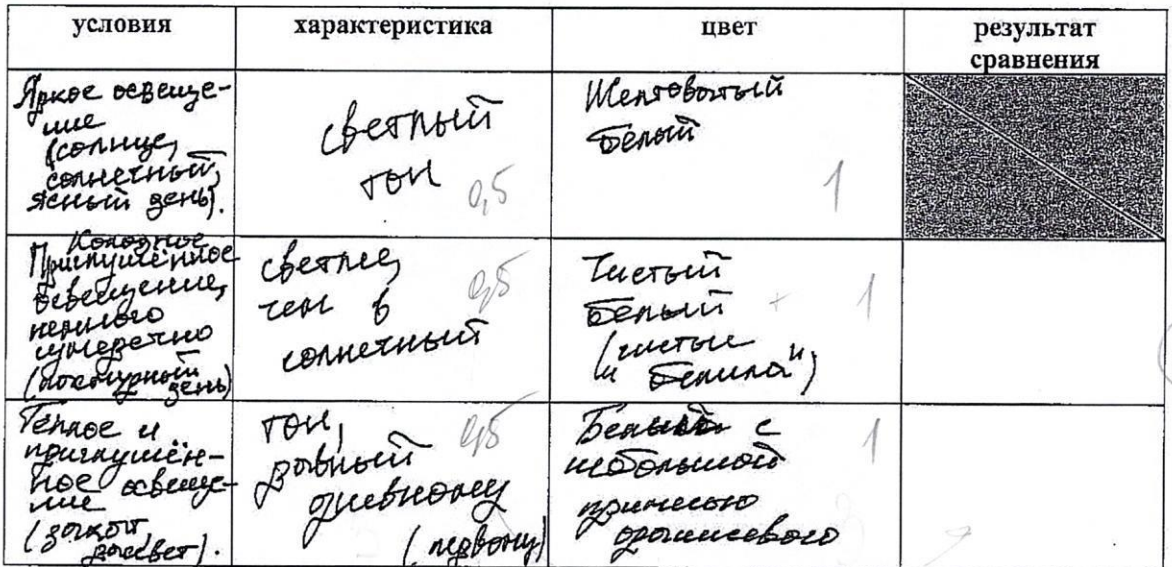 условия характеристика цвет результат сравнения
Яркое освеще-
ние
(солнце,
солнечный,
ясный день).
светлый
тон 0,5
Желтоватый
белый
1
Холодное
Приглушённое
освещение,
немного
сумеречно
(пасмурный
день)
светлее,
чем в 0,5
солнечный
Чистый
белый + 1
(чистые
"белила")
Тёплое и
приглушён-
ное освеще-
ние
(закат,
рассвет).
тон, 0,5
равный
дневному
(первому)
Белый с 1
небольшой
примесью
оранжевого